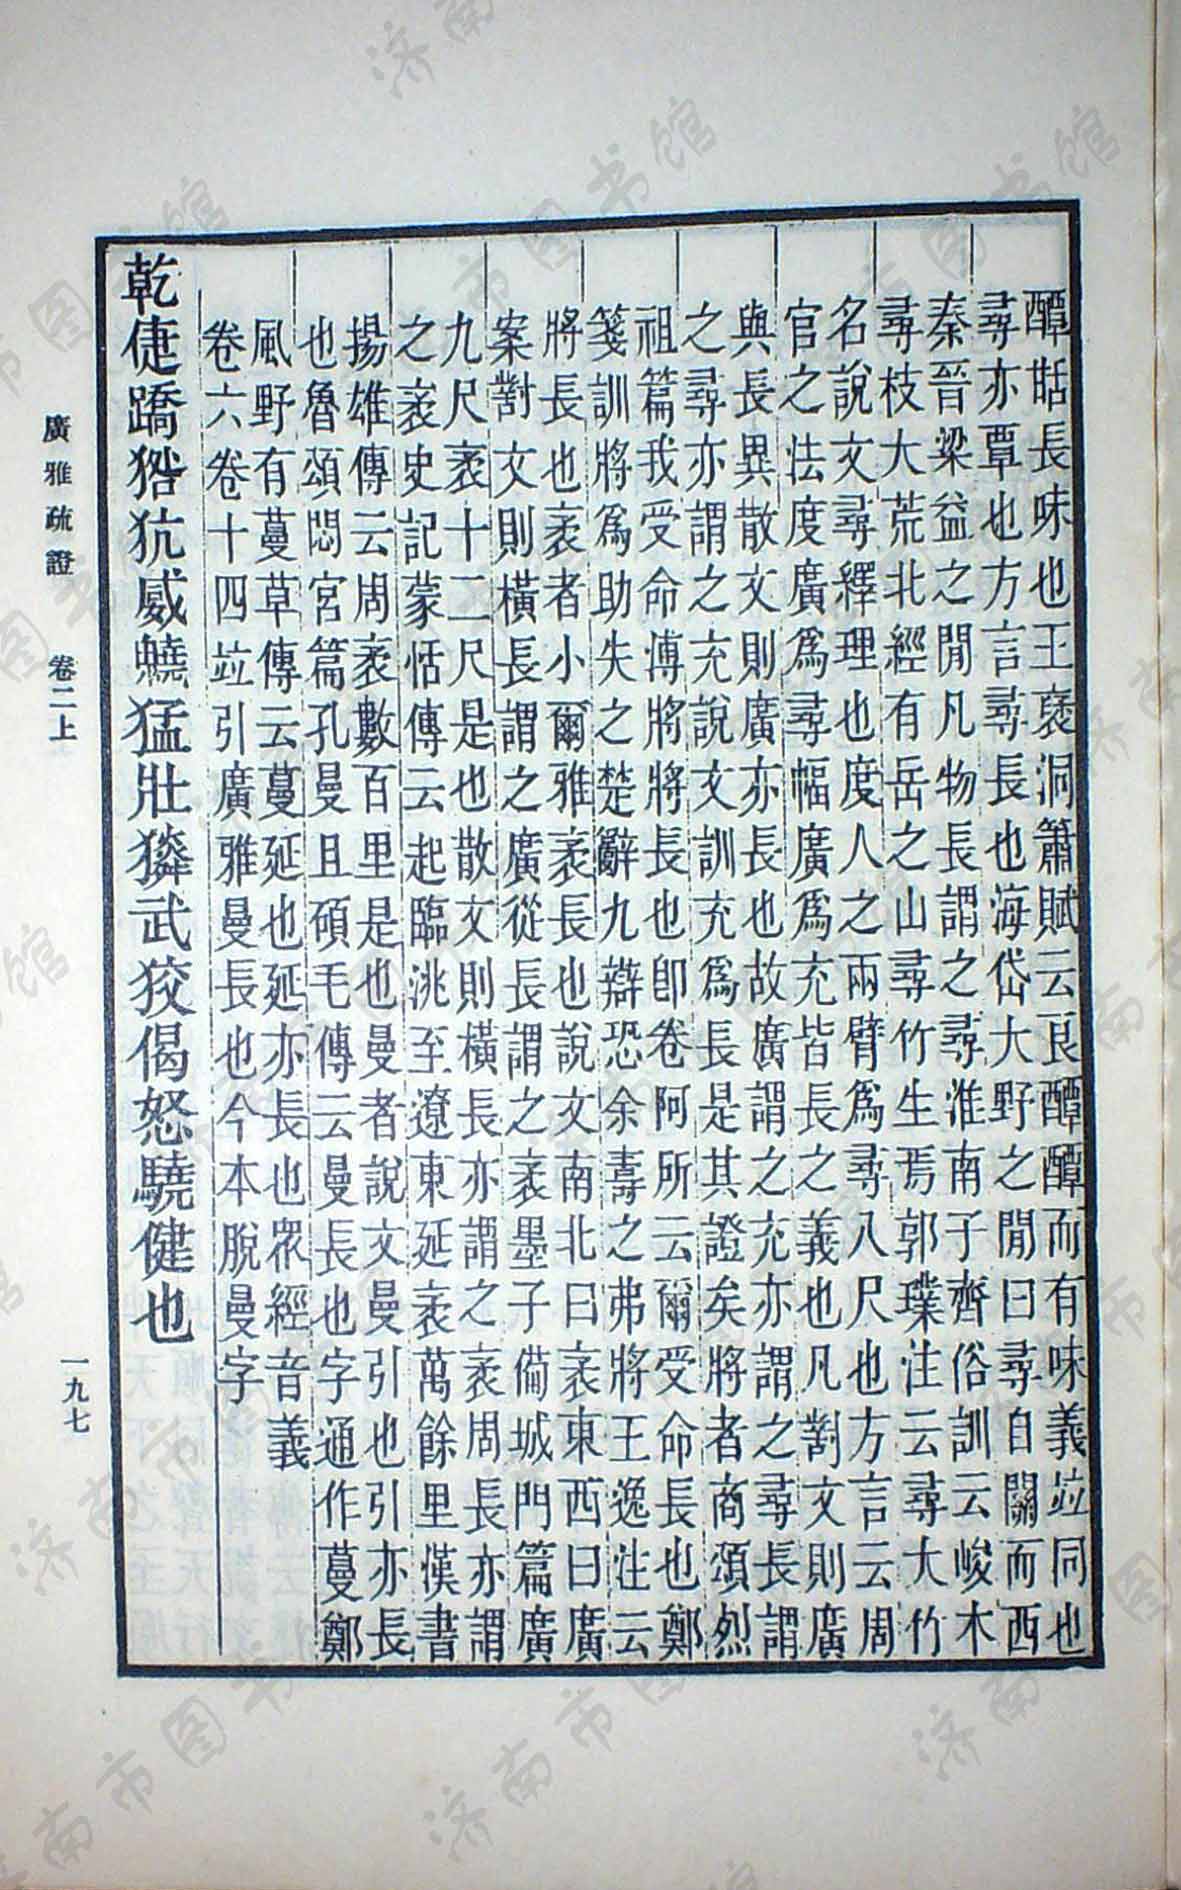 醰䣽長味也王褒洞簫賦云良醰醰而有味義竝同也
尋亦覃也方言尋長也海岱大野之閒曰尋自關而西
秦晉梁益之閒凡物長謂之尋淮南子齊俗訓云峻木
尋枝大荒北經有岳之山尋竹生焉郭璞注云尋大竹
名說文尋繹理也度人之兩臂爲尋八尺也方言云周
官之法度廣爲尋幅廣爲充皆長之義也凡對文則廣
與長異散文則廣亦長也故廣謂之充亦謂之尋長謂
之尋亦謂之充說文訓充爲長是其證矣將者商頌烈
祖篇我受命溥將將長也卽卷阿所云爾受命長也鄭
箋訓將爲助失之楚辭九辯恐余壽之弗將王逸注云
將長也袤者小爾雅袤長也說文南北曰袤東西曰廣
案對文則橫長謂之廣從長謂之袤墨子備城門篇廣
九尺袤十二尺是也散文則橫長亦謂之袤周長亦謂
之袤史記蒙恬傳云起臨洮至遼東延袤萬餘里漢書
揚雄傳云周袤數百里是也曼者說文曼引也引亦長
也魯頌閟宮篇孔曼且碩毛傳云曼長也字通作蔓鄭
風野有蔓草傳云蔓延也延亦長也眾經音義
卷六卷十四竝引廣雅曼長也今本脫曼字
乾倢蹻㹤犺威蟯猛壯獜武狡偈怒驍健也
廣雅疏證 卷二上
一九七
济南市图书馆